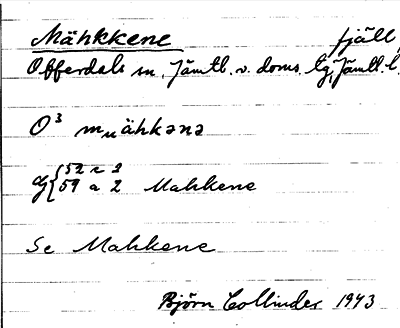 Mähkkene fjäll,
Offerdals sn, Jämtl. v. doms. tg, Jämtl. l.
O³ mᵤähkənə
52 c 2
59 a 2 Mahkene
Se Mahkene
Björn Collinder 1943